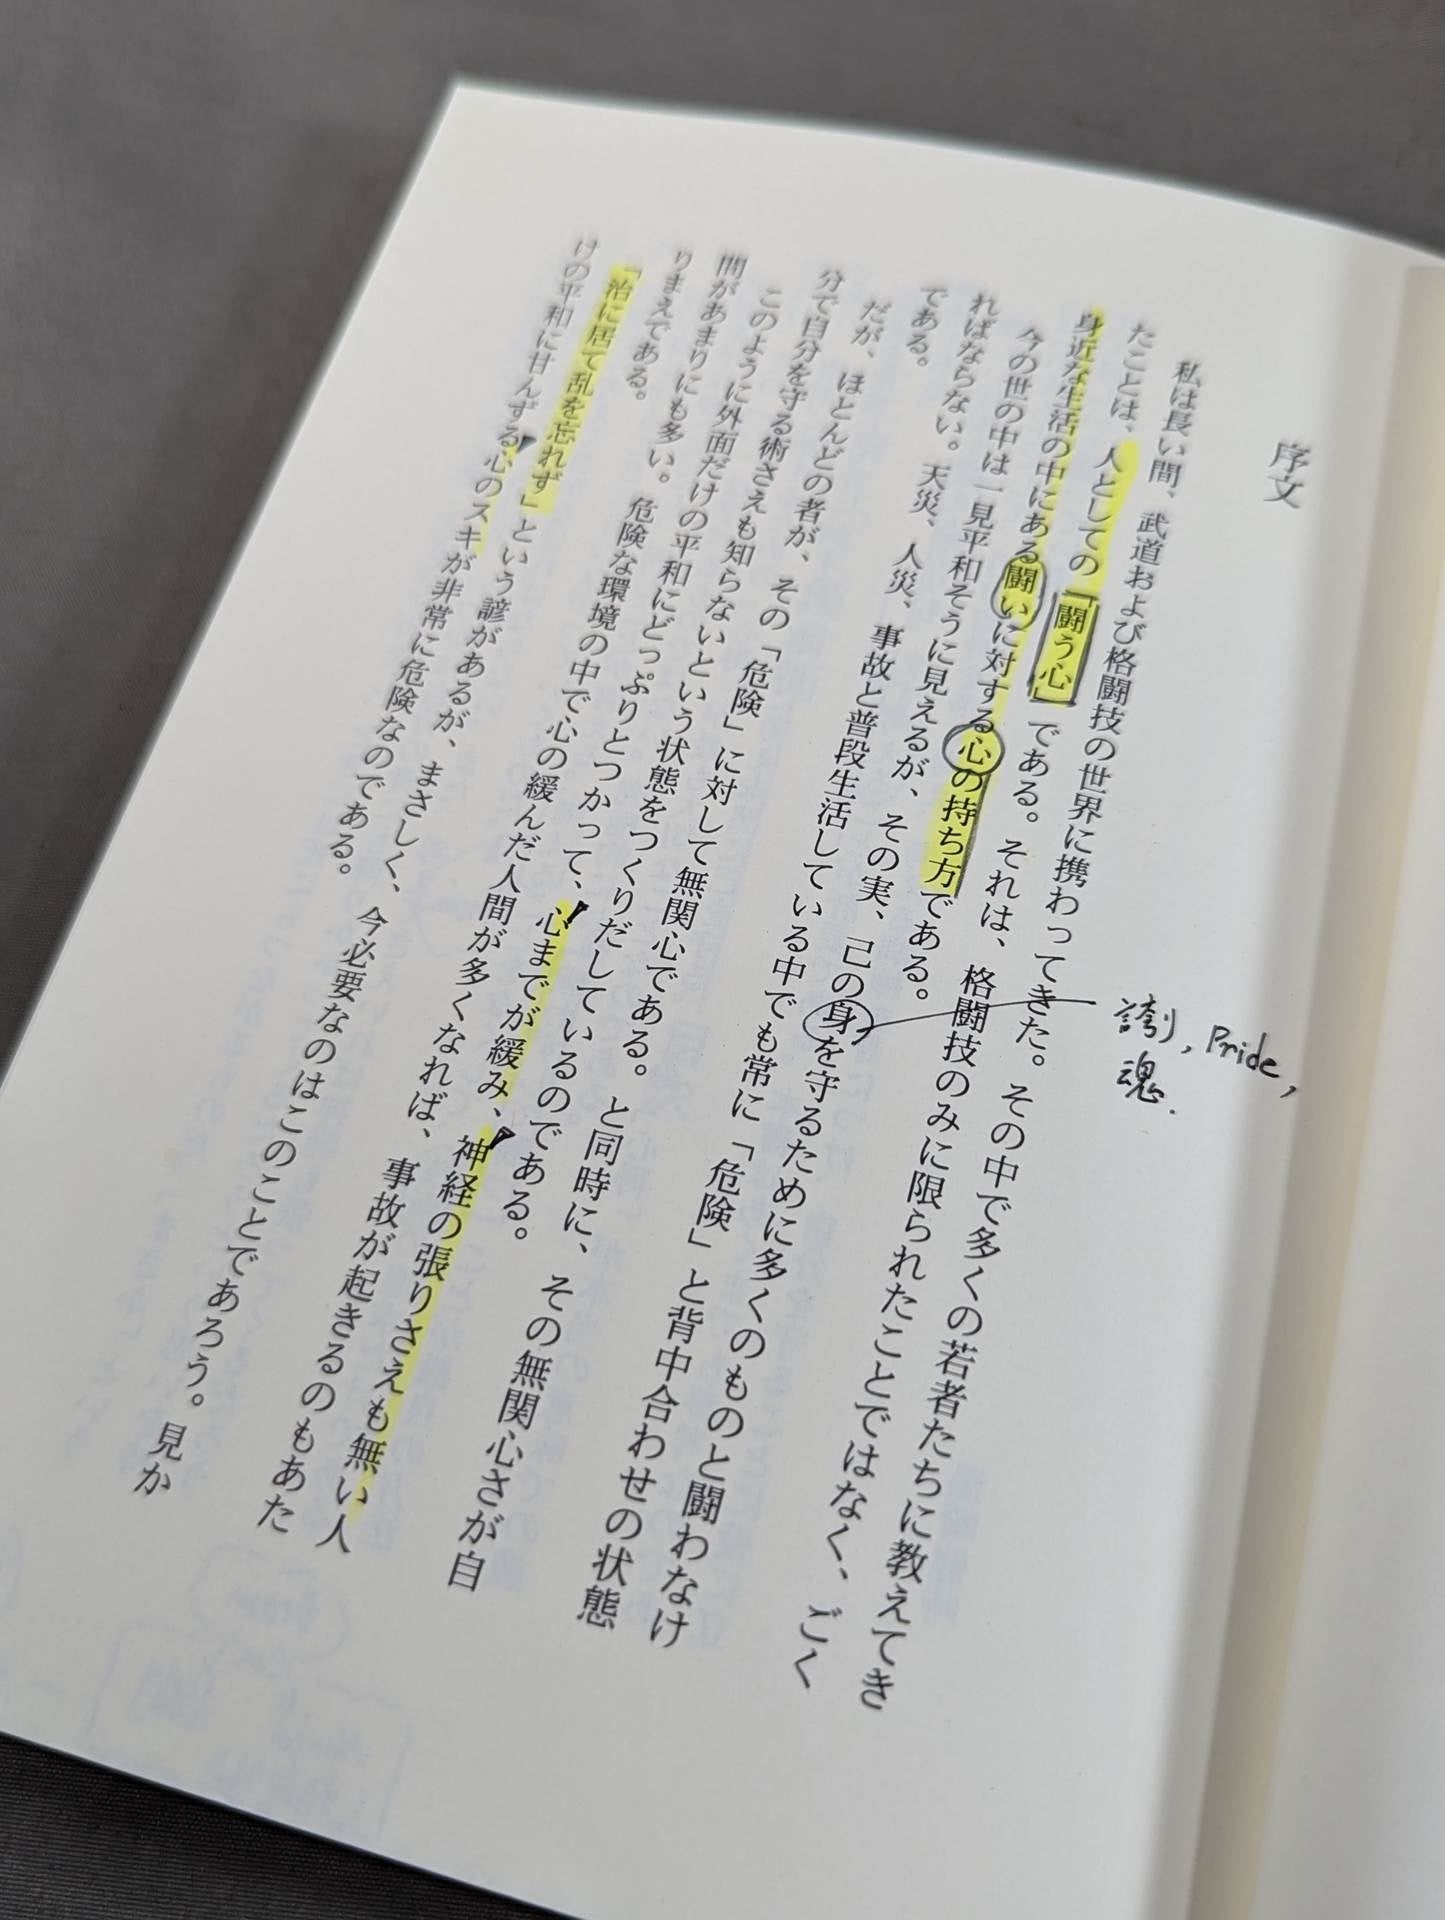 序文
私は長い間、武道および格闘技の世界に携わってきた。その中で多くの若者たちに教えてき
たことは、人としての「闘う心」である。それは、格闘技のみに限られたことではなく、ごく
身近な生活の中にある闘いに対する心の持ち方である。
今の世の中は一見平和そうに見えるが、その実、己の身を守るために多くのものと闘わなけ
ればならない。天災、人災、事故と普段生活している中でも常に「危険」と背中合わせの状態
である。
だが、ほとんどの者が、その「危険」に対して無関心である。と同時に、その無関心さが自
分で自分を守る術さえも知らないという状態をつくりだしているのである。
このように外面だけの平和にどっぷりとつかって、心までが緩み、神経の張りさえも無い人
間があまりにも多い。危険な環境の中で心の緩んだ人間が多くなれば、事故が起きるのもあた
りまえである。
「治に居て乱を忘れず」という諺があるが、まさしく、今必要なのはこのことであろう。見か
けの平和に甘んずる心のスキが非常に危険なのである。
誇り, Pride,
魂.